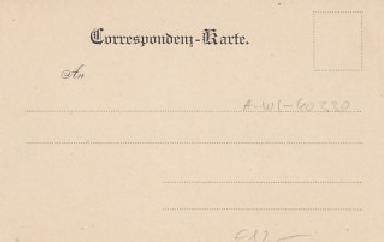 Correspondenz-Karte.
An
A-WI-60220